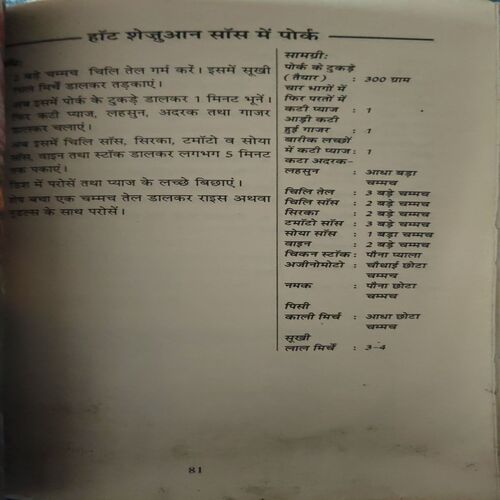 हॉट शेजुआन सॉस में पोर्क
2 बड़े चम्मच चिलि तेल गर्म करें। इसमें सूखी
लाल मिर्चें डालकर तड़काएं।
अब इसमें पोर्क के टुकड़े डालकर 1 मिनट भूनें।
फिर कटी प्याज, लहसुन, अदरक तथा गाजर
डालकर चलाएं।
अब इसमें चिलि सॉस, सिरका, टमॉटो व सोया
सॉस, वाइन तथा स्टॉक डालकर लगभग 5 मिनट
तक पकाएं।
डिश में परोसें तथा प्याज के लच्छे बिछाएं।
शेष बचा एक चम्मच तेल डालकर राइस अथवा
नूडल्स के साथ परोसें।
सामग्री:
पोर्क के टुकड़े
(तैयार) : 300 ग्राम
चार भागों में
फिर परतों में
कटी प्याज : 1
आड़ी कटी
हुई गाजर : 1
बारीक लच्छों
में कटी प्याज: 1
कटा अदरक–
लहसुन : आधा बड़ा
चम्मच
चिलि तेल : 3 बड़े चम्मच
चिलि सॉस : 2 बड़े चम्मच
सिरका : 2 बड़े चम्मच
टमॉटो सॉस : 3 बड़े चम्मच
सोया सॉस : 1 बड़ा चम्मच
वाइन : 2 बड़े चम्मच
चिकन स्टॉक: पौना प्याला
अजीनोमोटो : चौथाई छोटा
चम्मच
नमक : पौना छोटा
चम्मच
पिसी
काली मिर्च : आधा छोटा
चम्मच
सूखी
लाल मिर्चें : 3-4
81